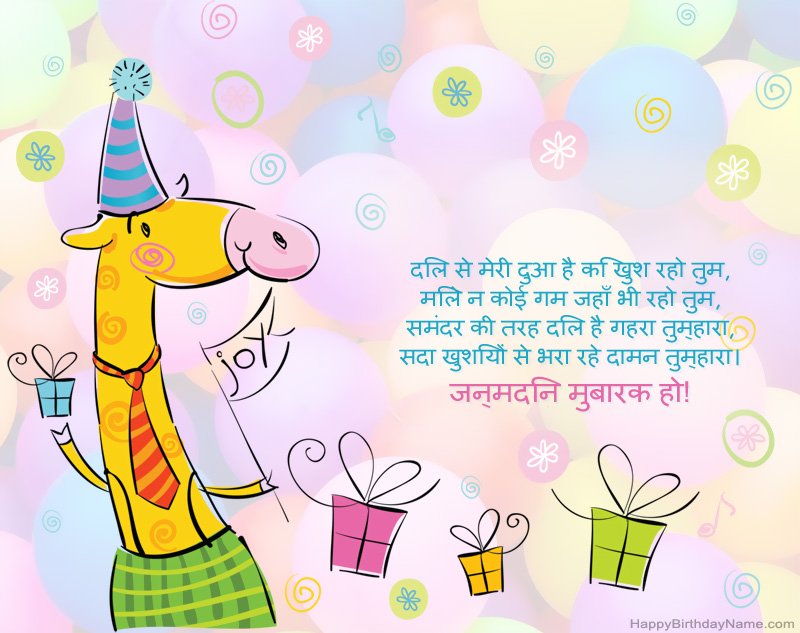 joy
दलि से मेरी दुआ है कि खुश रहो तुम,
मलिे न कोई गम जहाँ भी रहो तुम,
समंदर की तरह दलि है गहरा तुम्हारा,
सदा खुशयिों से भरा रहे दामन तुम्हारा।
जन्मदनि मुबारक हो!
HappyBirthdayName.com